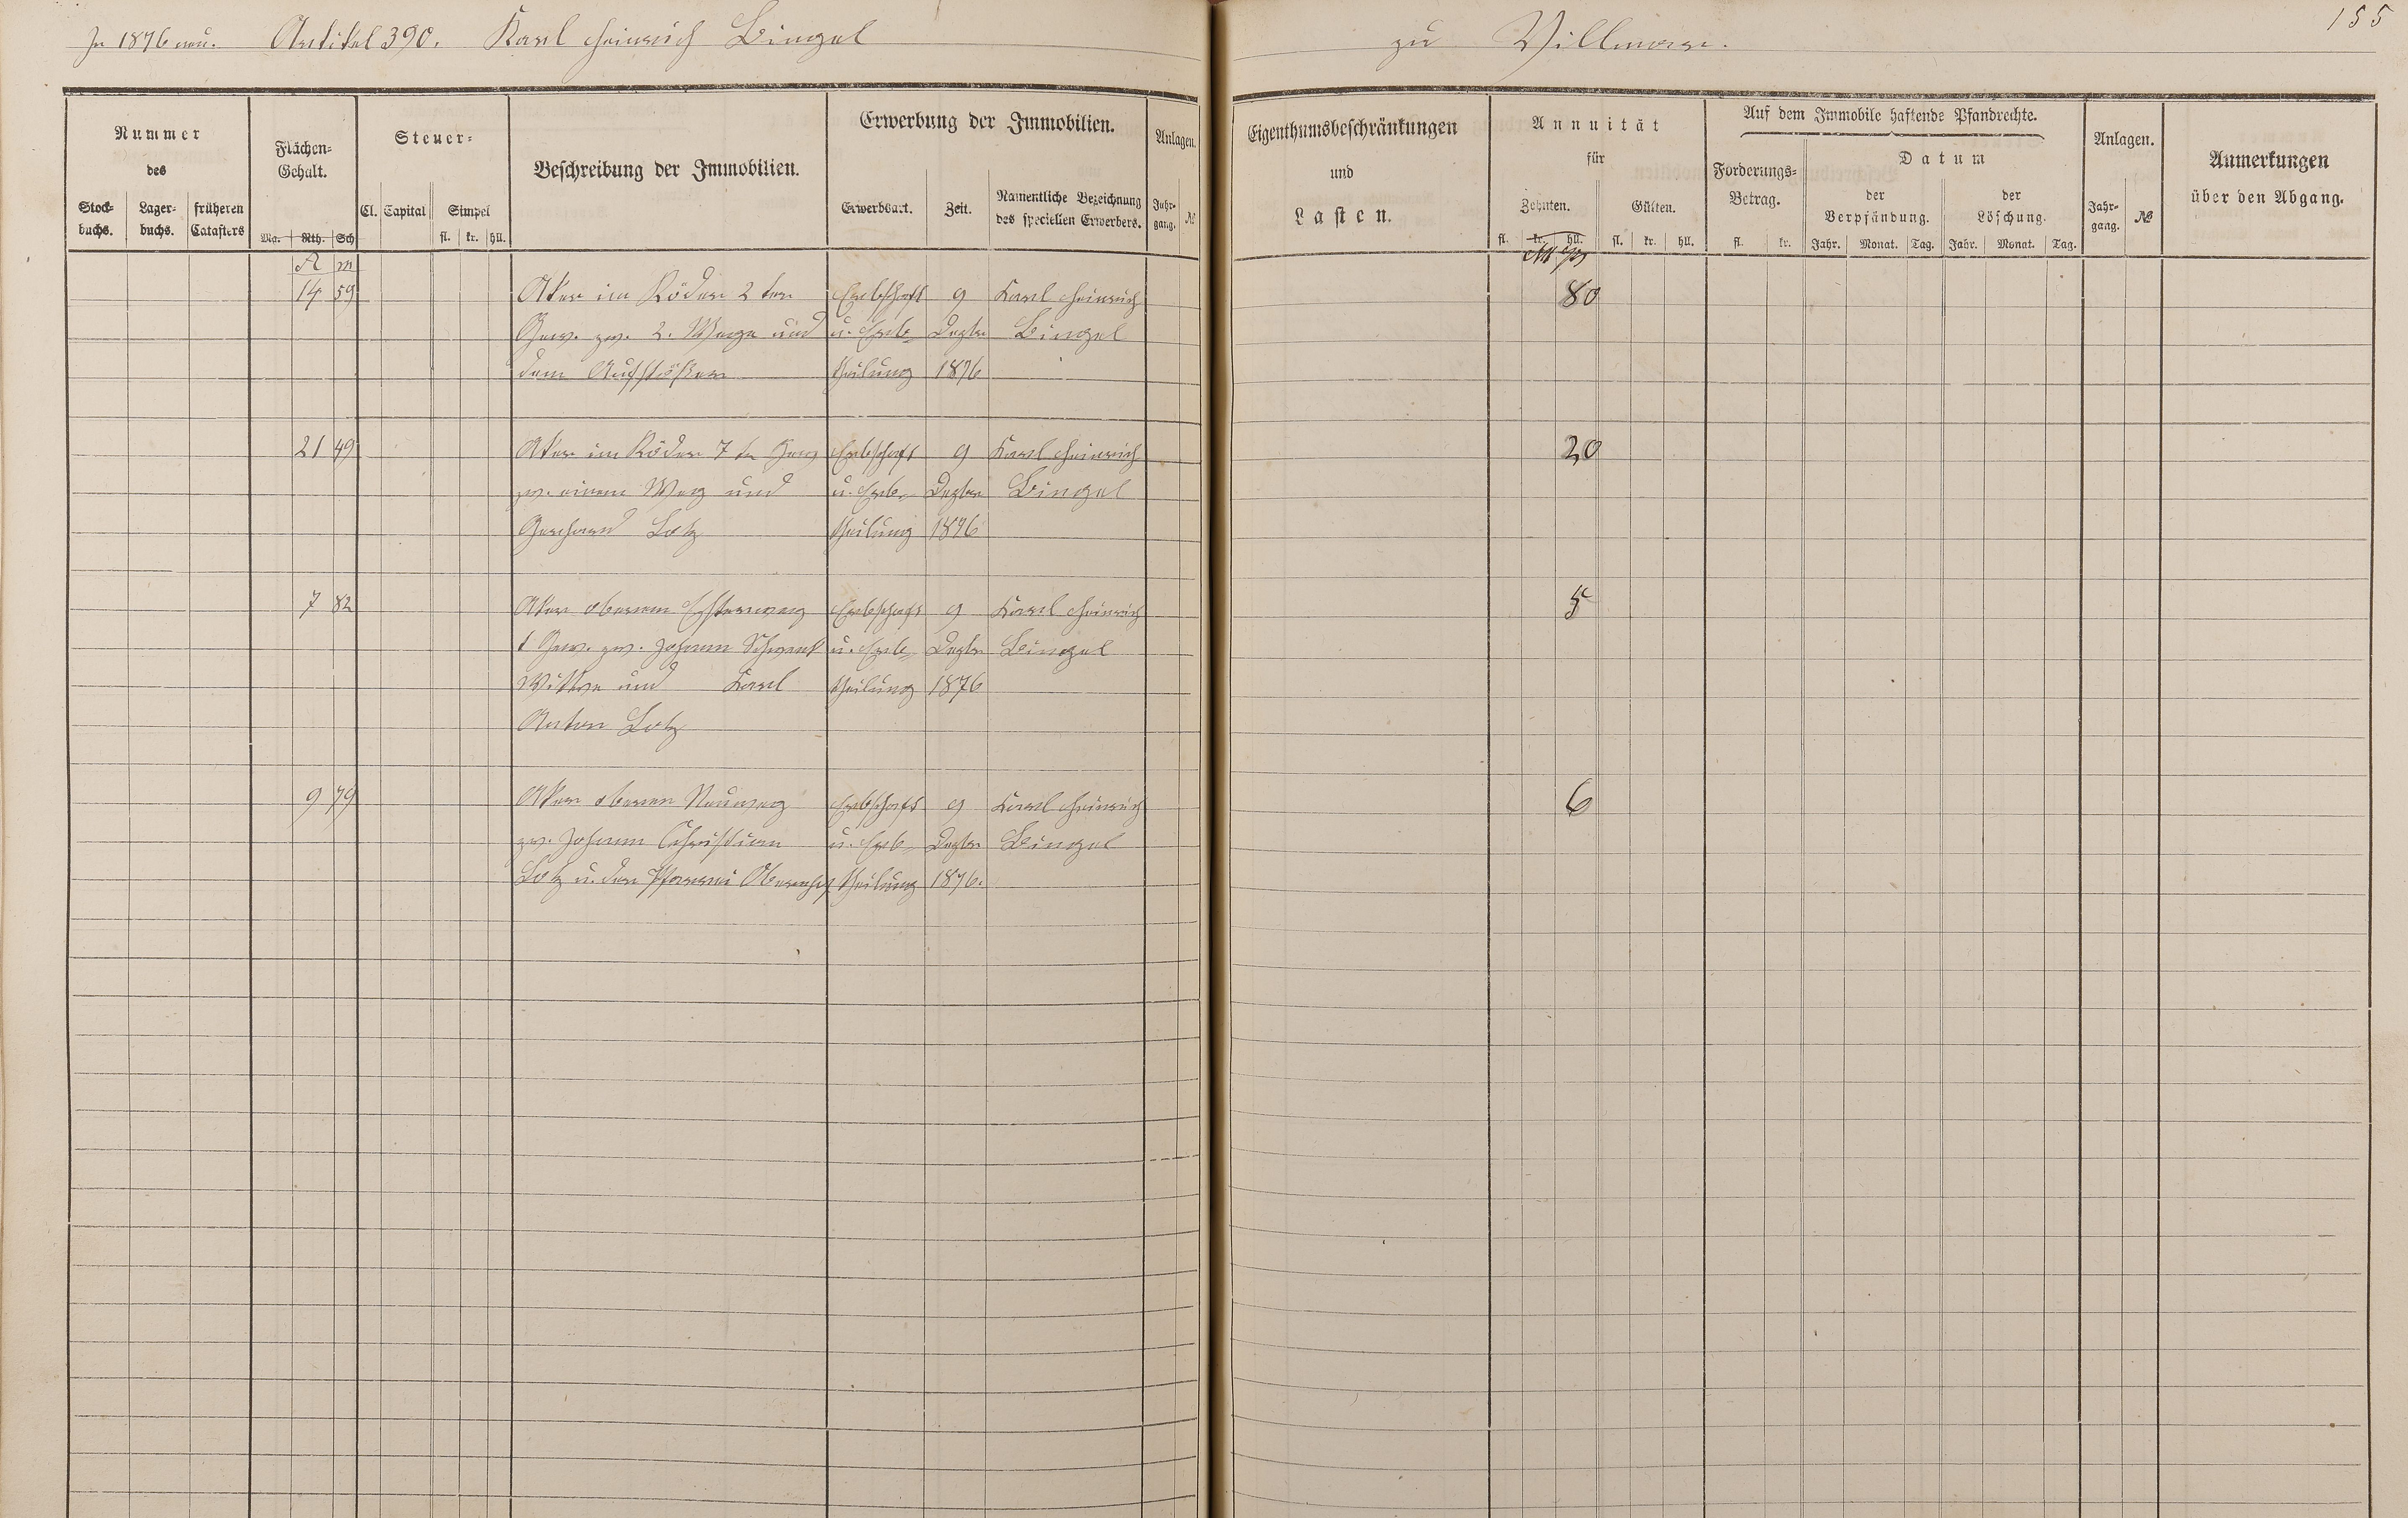 In 1876 neu. Artikel 390. Karl Heinrich Bingel
zu Villmar.
155
Nummer des
Stockbuchs. Lagerbuchs. früheren Catasters
Flächen-Gehalt.
Mg. Rth. Sch
Steuer-
Cl. Capital Simpel
fl. kr. hll.
Beschreibung der Immobilien.
Erwerbung der Immobilien.
Erwerbsart. Zeit. Namentliche Bezeichnung des speciellen Erwerbers.
Anlagen.
Jahrgang. №
Eigenthumsbeschränkungen
und
Lasten.
Annuität
für
Zehnten. Gülten.
fl. kr. hll. fl. kr. hll.
Auf dem Immobile haftende Pfandrechte.
Forderungs-Betrag.
fl. kr.
Datum
der Verpfändung. der Löschung.
Jahr. Monat. Tag. Jahr. Monat. Tag.
Anlagen.
Jahrgang. №
Anmerkungen
über den Abgang.
A m
14 59 Aker im Röder 2 ter Erbschaft 9 Karl Heinrich 80
Gew. zw. 2. Wege und u. Erb- Dezbr Bingel
dem Aufstößer theilung 1876
21 49 Aker im Röder 7 te Gew Erbschaft 9 Karl Heinrich 20
zw. einem Weg und u. Erb- Dezbr Bingel
Gerhard Lotz theilung 1876
7 82 Aker oberem Erbschaft 9 Karl Heinrich 5
1 Gew. zw. Johann Schwenk u. Erb- Dezbr Bingel
Wittwe und Karl theilung 1876
Anton Lotz
9 79 Aker oberen Neuweg Erbschaft 9 Karl Heinrich 6
zw. Johann Christian u. Erb- Dezbr Bingel
Lotz u. der Pfarrei theilung 1876.